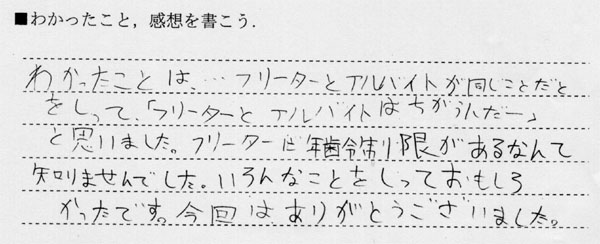 ■わかったこと，感想を書こう．
わかったことは、…フリーターとアルバイトが同じことだと
をしって、「フリーターとアルバイトはちがうんだー」
と思いました。フリーターに年齢制限があるなんて
知りませんでした。いろんなことをしっておもしろ
かったです。今回はありがとうございました。